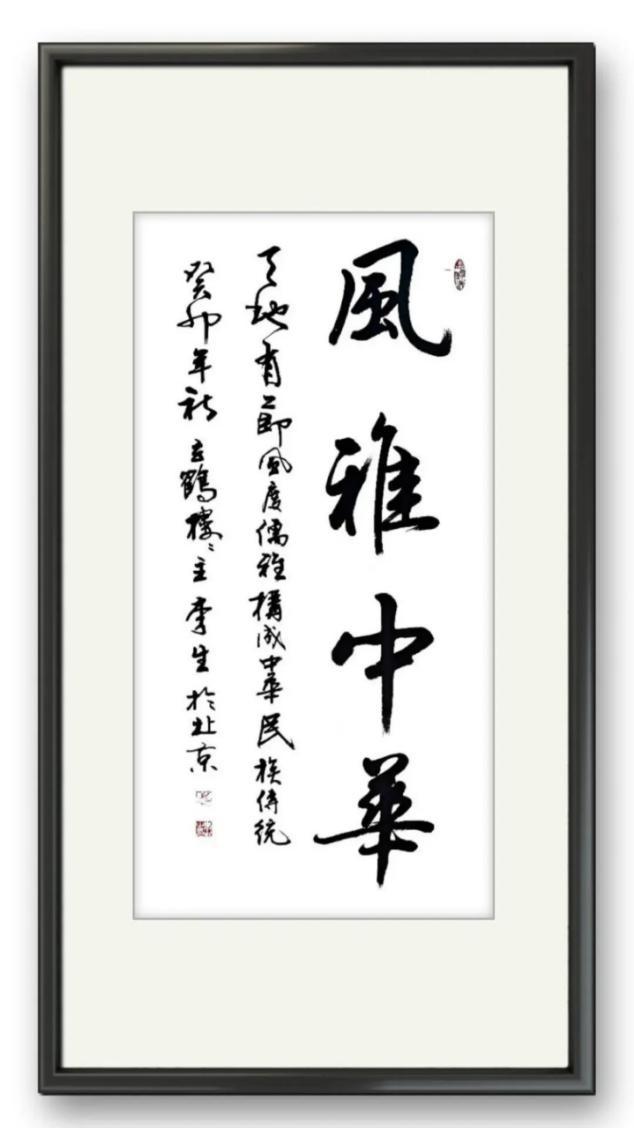 風雅中華
天地有節風度儒雅構成中華民族傳統
癸卯年秋鶴樓〻主李生於北京